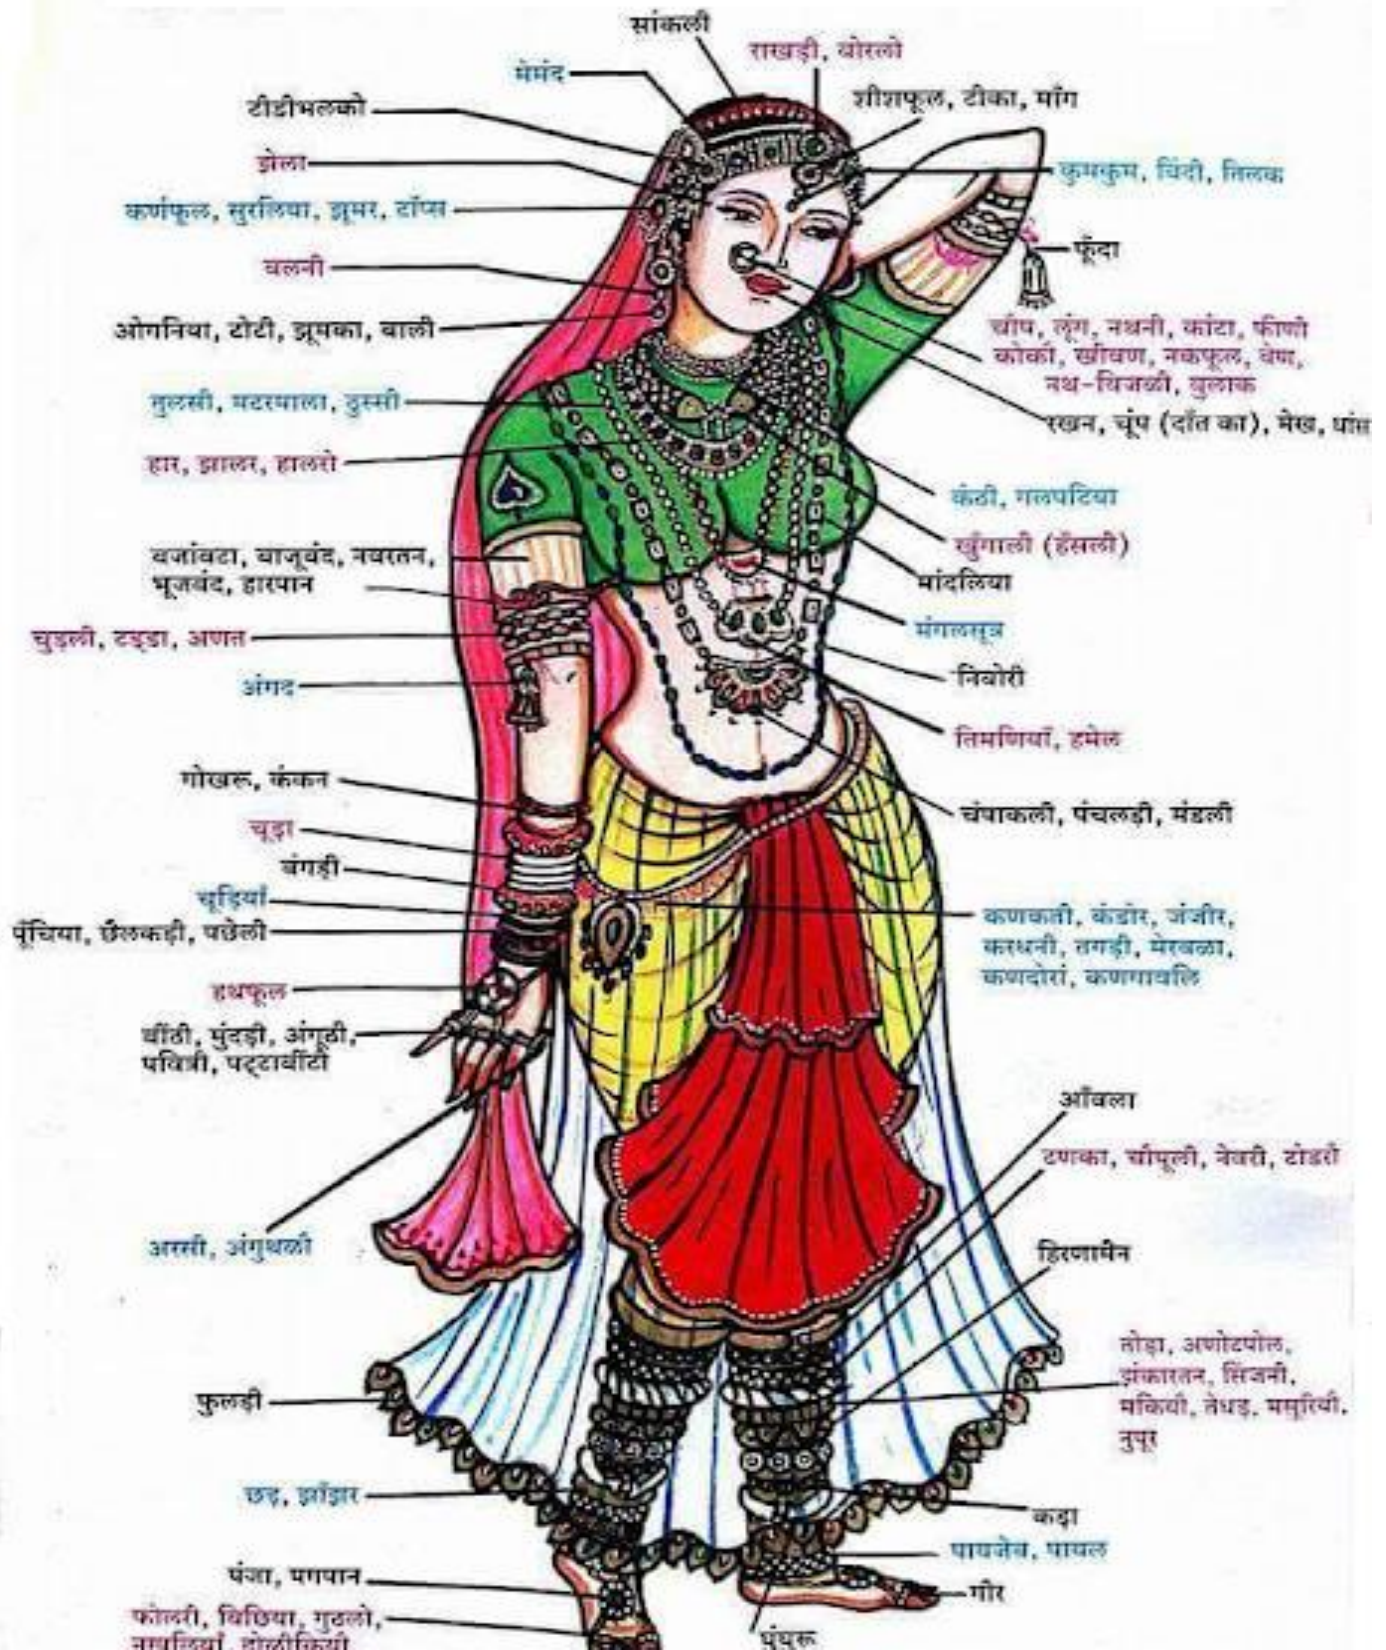 सांकली
राखड़ी, बोरलो
मेमंद
शीशफूल, टीका, माँग
टीडीभलको
झेला
कुमकुम, बिंदी, तिलक
कर्णफूल, सुरलिया, झूमर, टॉप्स
फूँदा
बलनी
ओगनिया, टोटी, झूमका, बाली
चोप, लूंग, नथनी, कांटा, फीणी
कोकी, खीवण, नकफूल, वेण,
नथ-बिजळी, बुलाक
तुलसी, मटरमाला, ठुस्सी
रखन, चूंप (दाँत का), मेख, धांस
हार, झालर, हालरो
कंठी, गलपटिया
खुँगाली (हँसली)
बजांबटा, बाजूबंद, नवरतन,
भूजबंद, हारपान
मांदलिया
मंगलसूत्र
चुड़ली, टड्डा, अणत
निबोरी
अंगद
तिमणियाँ, हमेल
गोखरू, कंकन
चंपाकली, पंचलड़ी, मंडली
चूड़ा
बंगड़ी
चूड़ियां
पूँचिया, छैलकड़ी, पछेली
कणकती, कंडोर, जंजीर,
करधनी, तगड़ी, मेरवळा,
कणदोरां, कणगावलि
हथफूल
बींठी, मुंदड़ी, अंगूठी,
पवित्री, पट्टाबींटी
आँवला
टणका, चौपूली, नेवरी, टोडरो
अरसी, अंगुथळी
हिरणामैन
तोड़ा, अणोटपोल,
झंकारतन, सिंजनी,
मकियी, तेधड़, मसूरियी,
नुपूर
फुलड़ी
छड़, झाँझर
कड़ा
पायजेब, पायल
पंजा, पगपान
गोर
फोलरी, बिछिया, गुठलो,
घुंघरू